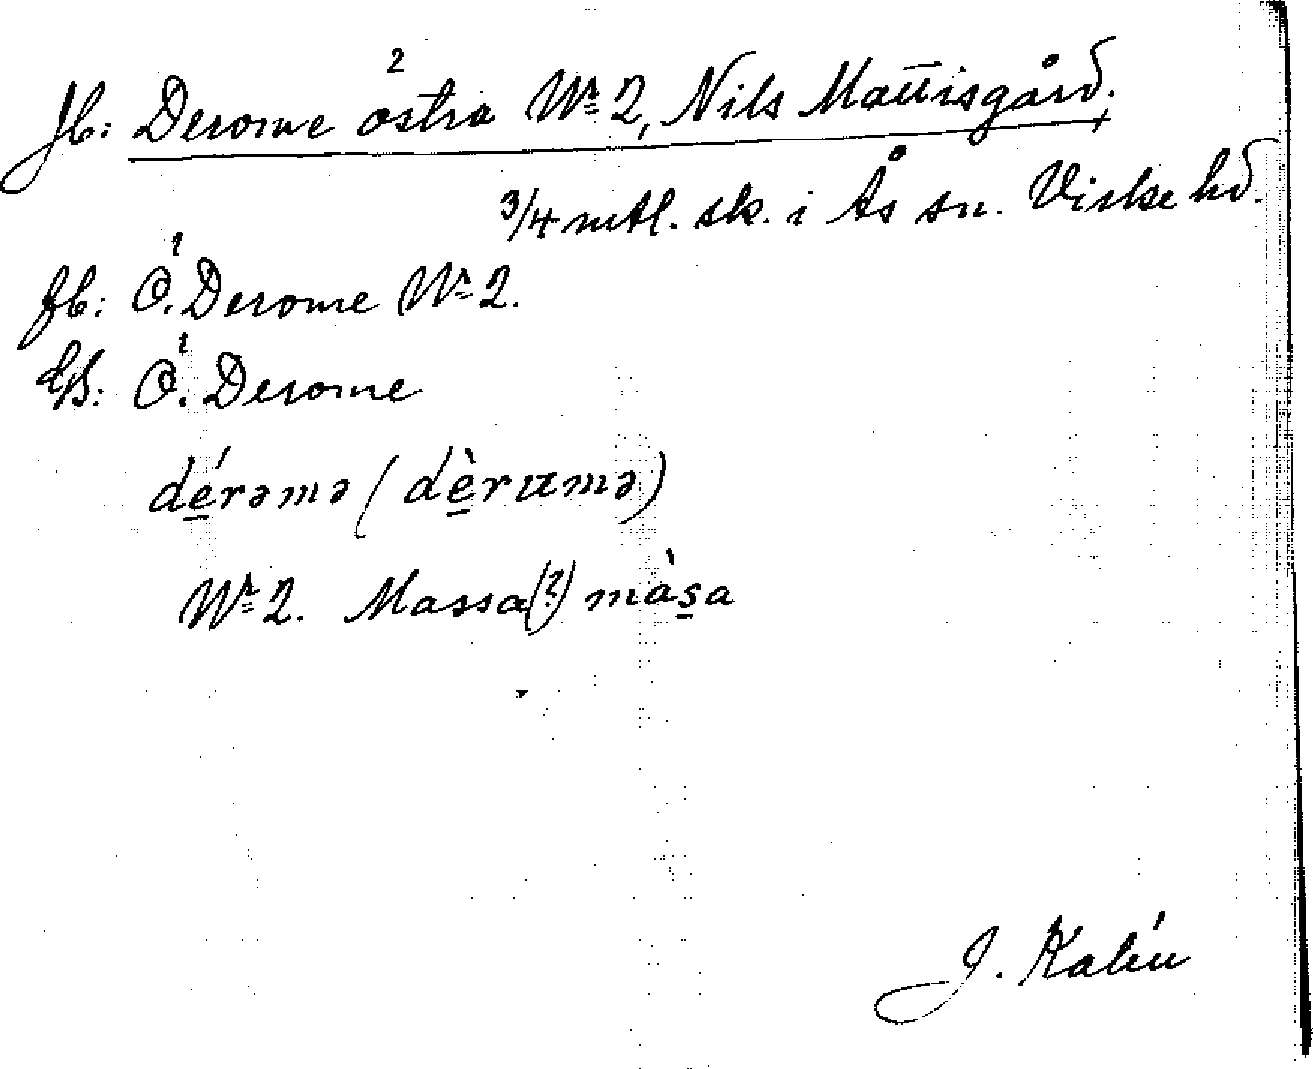 Jb: Derome östra Nr 2, Nils Mattisgård,
3/4 mtl. sk. i Ås sn. Viske hd.
fb: Ö. Derome Nr 2.
GS: Ö. Derome
dérəmə (dèrumə)
Nr 2. Massa(?) màsa
J. Kalén